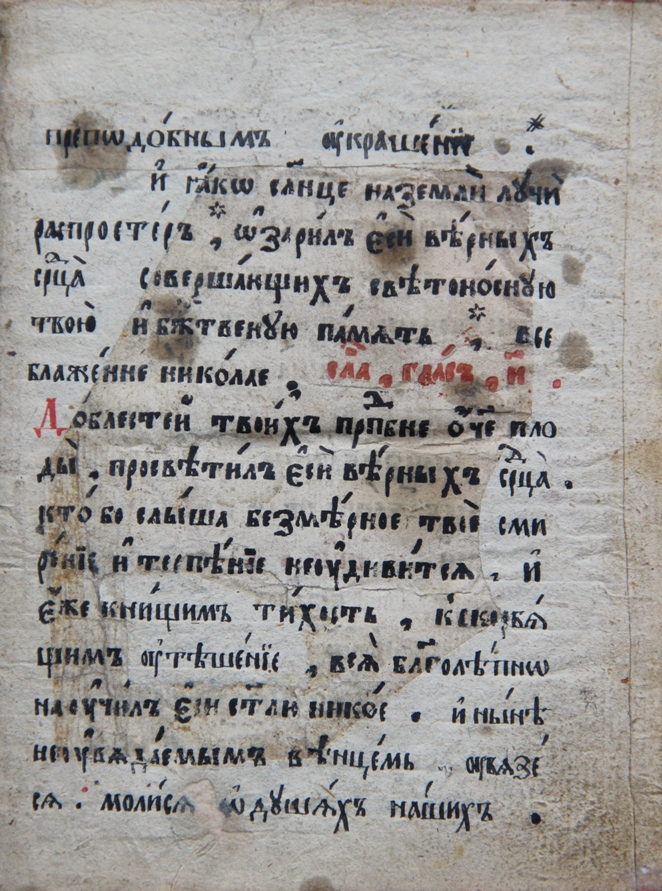 преподо́бнымъ ᲂу҆краше́нїе . *
и҆ ꙗ҆́кѡ сл҃нце на земли̑ лꙋчѝ
распросте́ръ , * ѡ҆зари́лъ є҆сѝ вѣ́рныхъ
срⷣца̀ соверша́ющихъ свѣтоно́сную
твою̀ и҆ бж҃твеную па́мѧть , * все
блаже́нне нико́лае , сла́ , гла́съ , и҃ .
До́блестей твои́хъ прпⷣбне ѻ҆́ч҃е пло
ды̀ , просвѣти́лъ є҆сѝ вѣ́рныхъ срⷣца̀ .
кто́ бо слы́ша безмѣ́рное твоѐ сми
ре́нїе и҆ терпѣ́нїе не оу҆диви́тсѧ , и҆
є҆́же к ни́щимъ ти́хость , к скорбѧ́
щимъ ᲂу҆тѣше́нїе , всѧ̀ бл҃голѣ́пнѡ
наоу҆чи́лъ є҆сѝ ст҃лю нико́е . и҆ ны́нѣ
неоу҆вѧда́емымъ вѣнце́мь ᲂу҆вѧзе́
сѧ . моли́сѧ ѡ҆ душа́хъ на́шихъ .